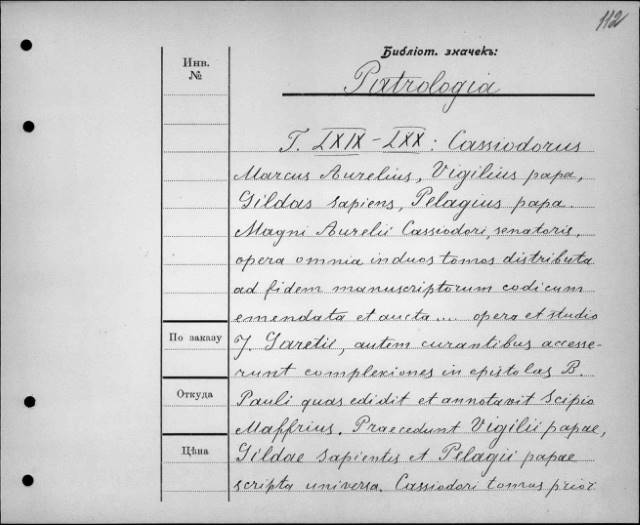 112
Библіот. значекъ:
Инв.
№
Patrologia
T. LXIX – LXX: Cassiodorus
Marcus Aurelius, Vigilius papa,
Gildas sapiens, Pelagius papa.
Magni Aurelii Cassiodori, senatoris,
opera omnia in duos tomos distributa
ad fidem manuscriptorum codicum
emendata et aucta.... opera et studio
По заказу
J. Garetii, autem curantibus accesse-
runt complexiones in epistolas B.
Откуда
Pauli quas edidit et annotavit Scipio
Maffrius. Praecedunt Vigilii papae,
Цѣна
Gildae sapientis et Pelagii papae
scripta universa. Cassiodori tomus prior